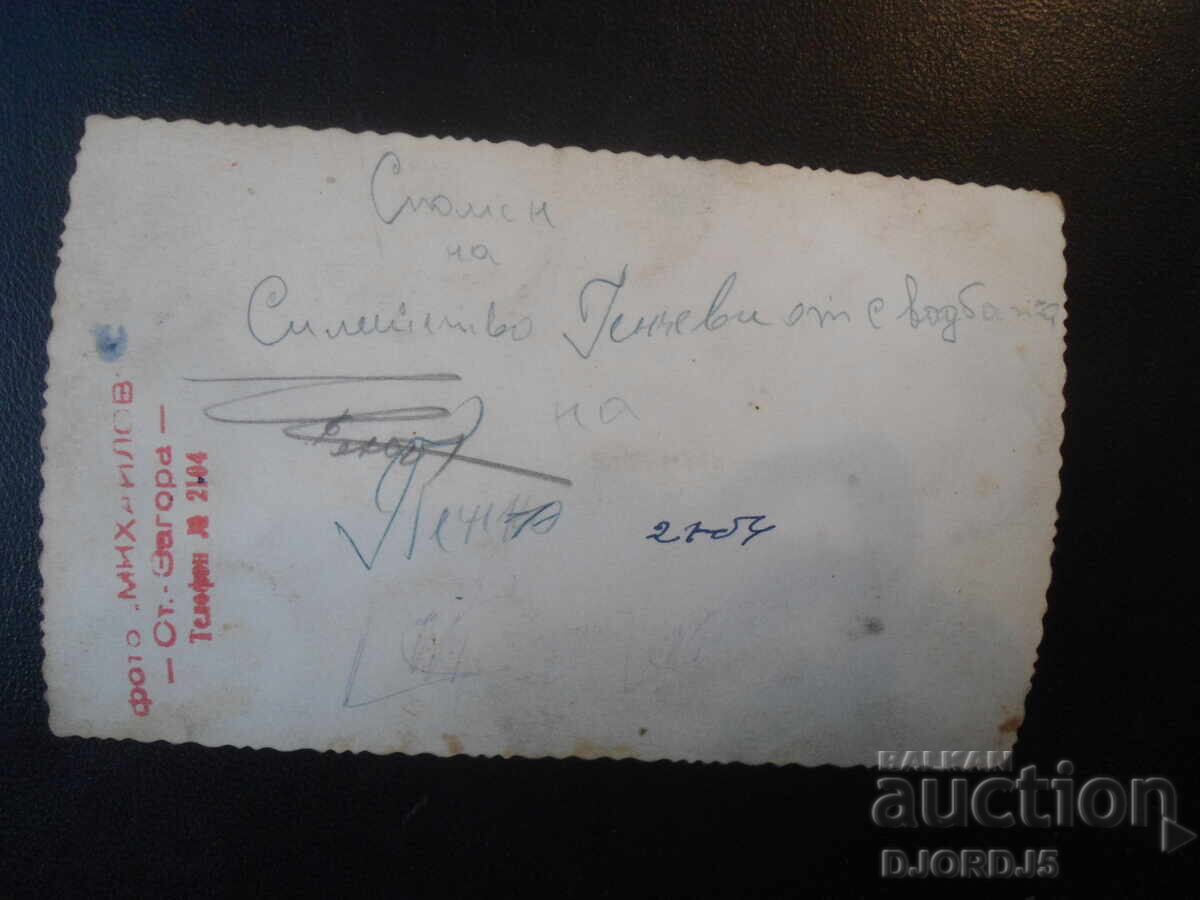 Спомен
на
Силейство Генчеви от сводбата
на
Пенка
ФОТО „МИХАИЛОВ"
— Ст.-Загора —
Телефон № 21-04
BALKAN
auction
DJORDJ5